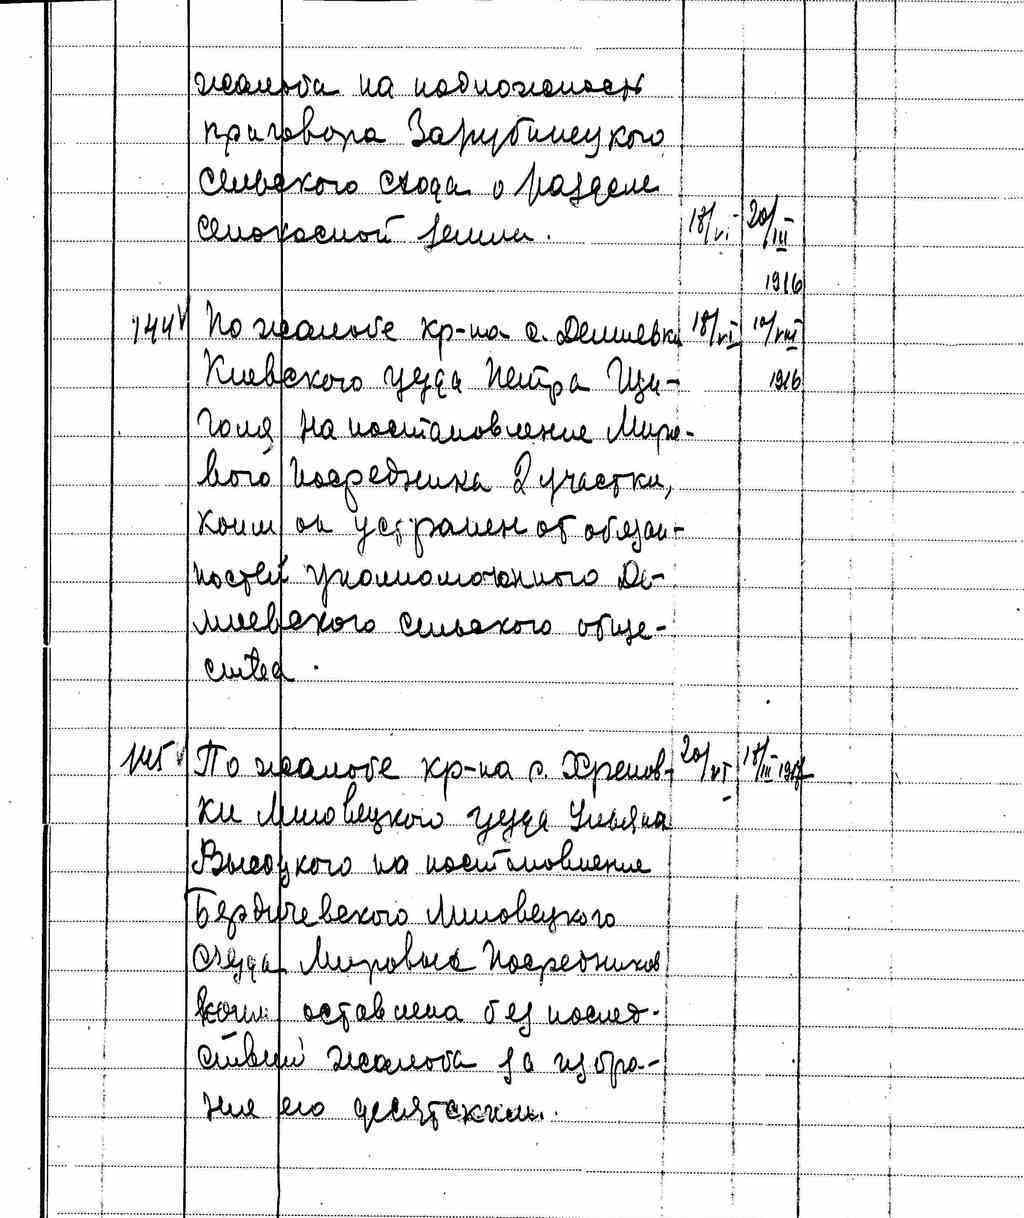 жалоба на подложность
приговора Зарубинецкого
сельского схода о разделе
сенокосной земли. 18/VI 20/III
1916
144 По жалобе кр-на с. Демиевки 18/VI 10/VIII
Киевского уезда Петра Щи- 1916
голя на постановление Миро-
вого Посредника 2 участка,
коим он устранен от обязан-
ностей уполномоченного Де-
миевского сельского обще-
ства.
145 По жалобе кр-на с. Хренов- 20/VI 18/III
ки Липовецкого уезда Ульяна
Высоцкого на постановление
Бердичевского Липовецкого
съезда Мировых Посредников
коим оставлена без послед-
ствий жалоба за избра-
ние его десятским.